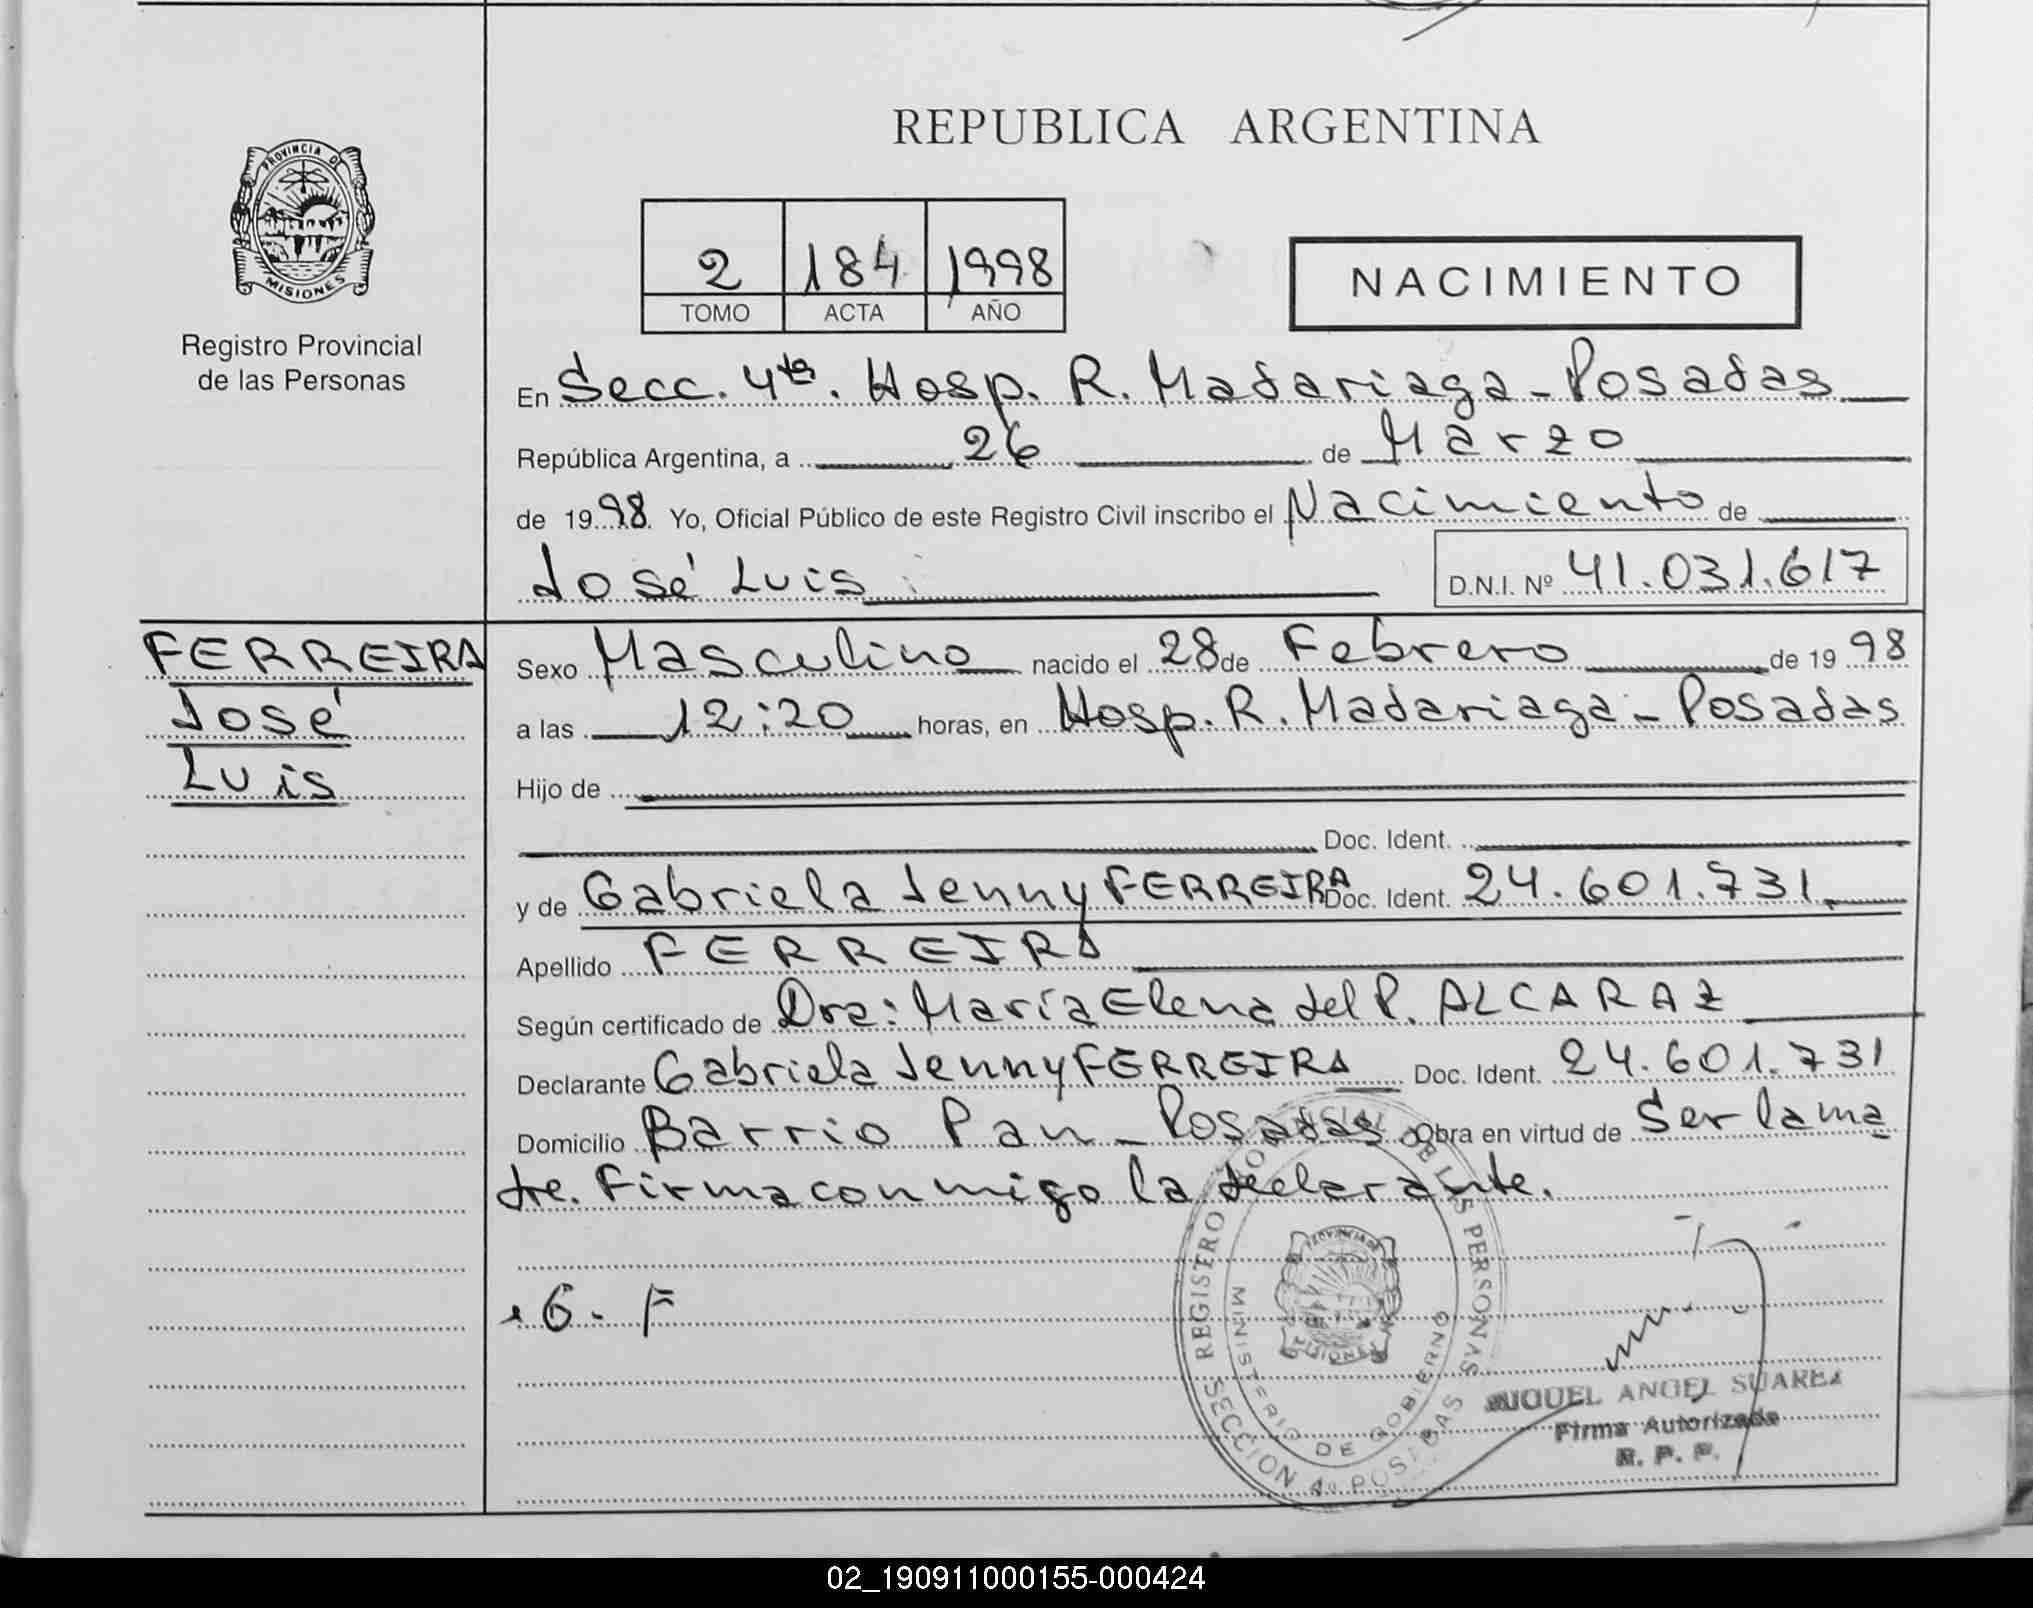 REPUBLICA ARGENTINA
PROVINCIA DE
MISIONES
Registro Provincial
de las Personas
2 184 1998
TOMO ACTA AÑO
NACIMIENTO
En Secc. 4ta. Hosp. R. Madariaga - Posadas
República Argentina, a 26 de Marzo
de 1998 Yo, Oficial Público de este Registro Civil inscribo el Nacimiento de
José Luis D.N.I. Nº 41.031.617
FERREIRA
José
Luis
Sexo Masculino nacido el 28 de Febrero de 1998
a las 12:20 horas, en Hosp. R. Madariaga - Posadas
Hijo de
Doc. Ident.
y de Gabriela Jenny FERREIRA Doc. Ident. 24.601.731
Apellido FERREIRA
Según certificado de Dra: María Elena del P. ALCARAZ
Declarante Gabriela Jenny FERREIRA Doc. Ident. 24.601.731
Domicilio Barrio Pan - Posadas Obra en virtud de Ser la ma
dre. Firma conmigo la declarante.
G. F
REGISTRO PROVINCIAL DE LAS PERSONAS
MINISTERIO DE GOBIERNO
PROVINCIA DE
MISIONES
SECCION 4º POSADAS
MIGUEL ANGEL SUAREZ
Firma Autorizada
R. P. P.
02_190911000155-000424